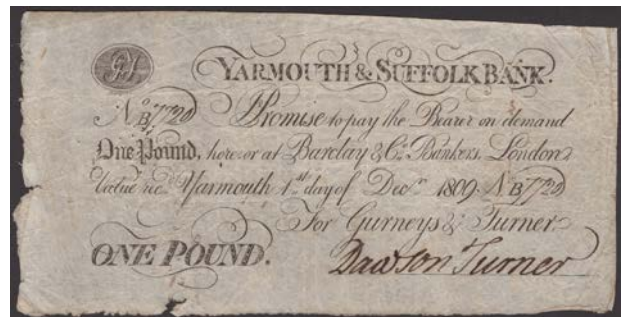 YARMOUTH & SUFFOLK BANK.
No B7720 I Promise to pay the Bearer on demand
One Pound, here or at Barclay & Co. Bankers, London
Value recd. Yarmouth 1st day of Decr. 1809 No B7720
For Gurneys & Turner
ONE POUND. Dawson Turner